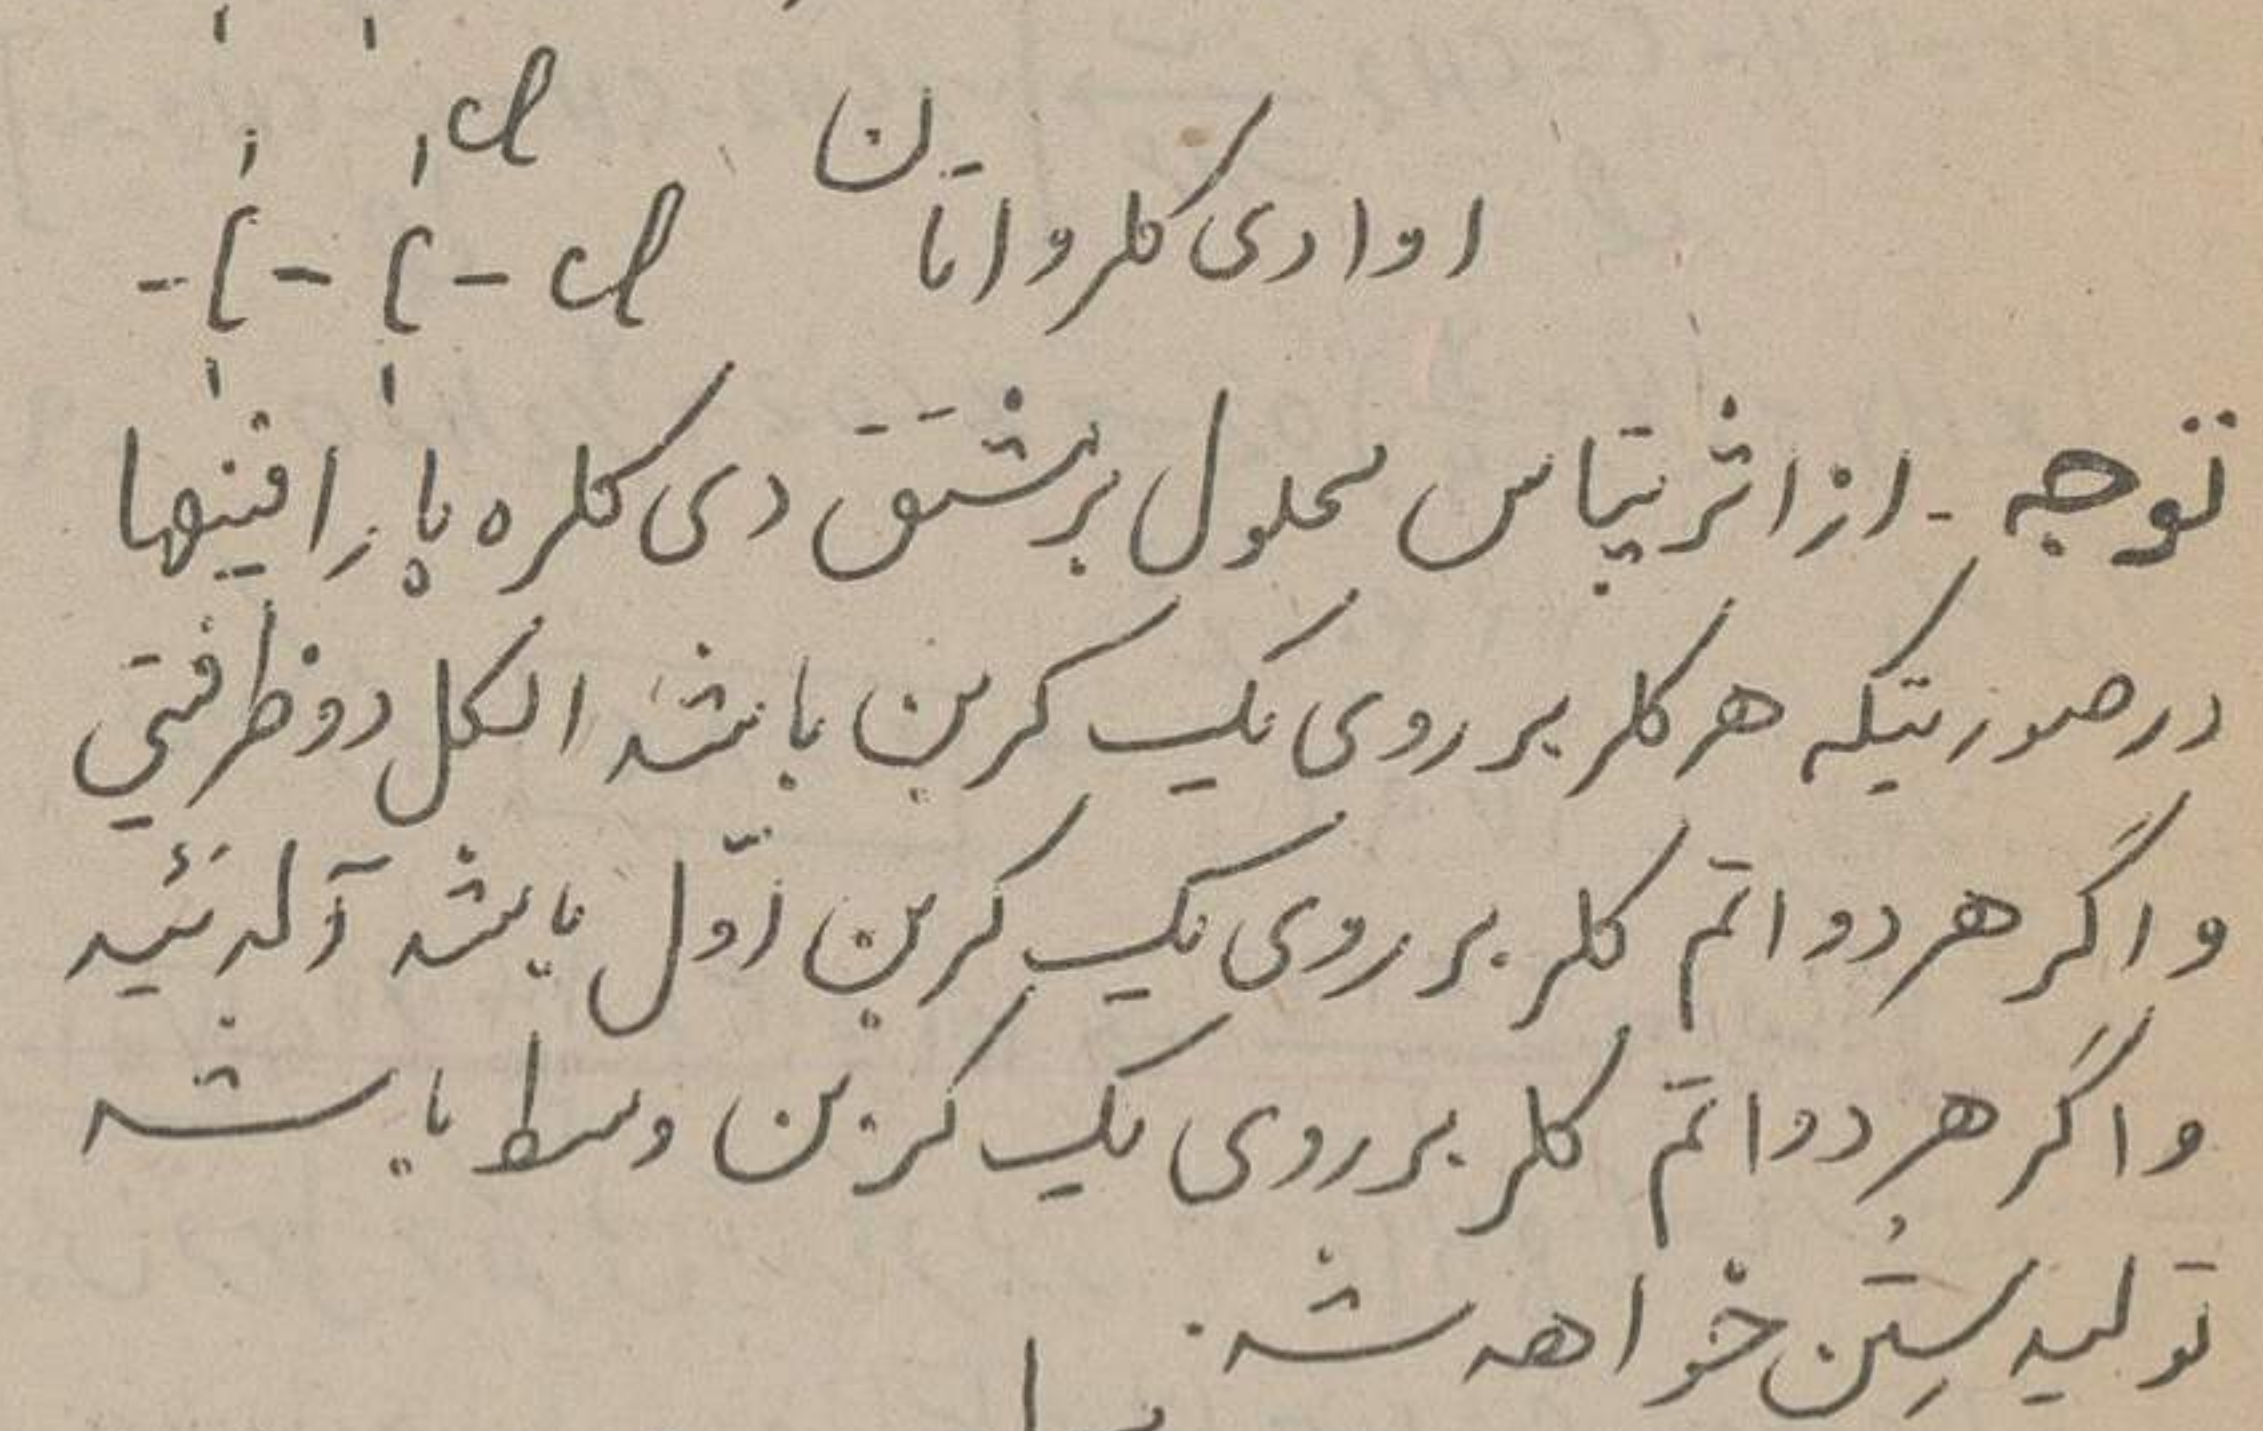 Cl
ا و ا دی کلرواتان -C-C-Cl
توجه - از اثر پتاس محلول بر مشتق دی کلره پارافینها
در صورتیکه هر کلر بر روی یک کربن باشد الکل دو ظرفتی
و اگر هر دو اتم کلر بر روی یک کربن اوّل باشد آلدئید
و اگر هر دو اتم کلر بر روی یک کربن وسط باشد
تولید ستن خواهد شد.